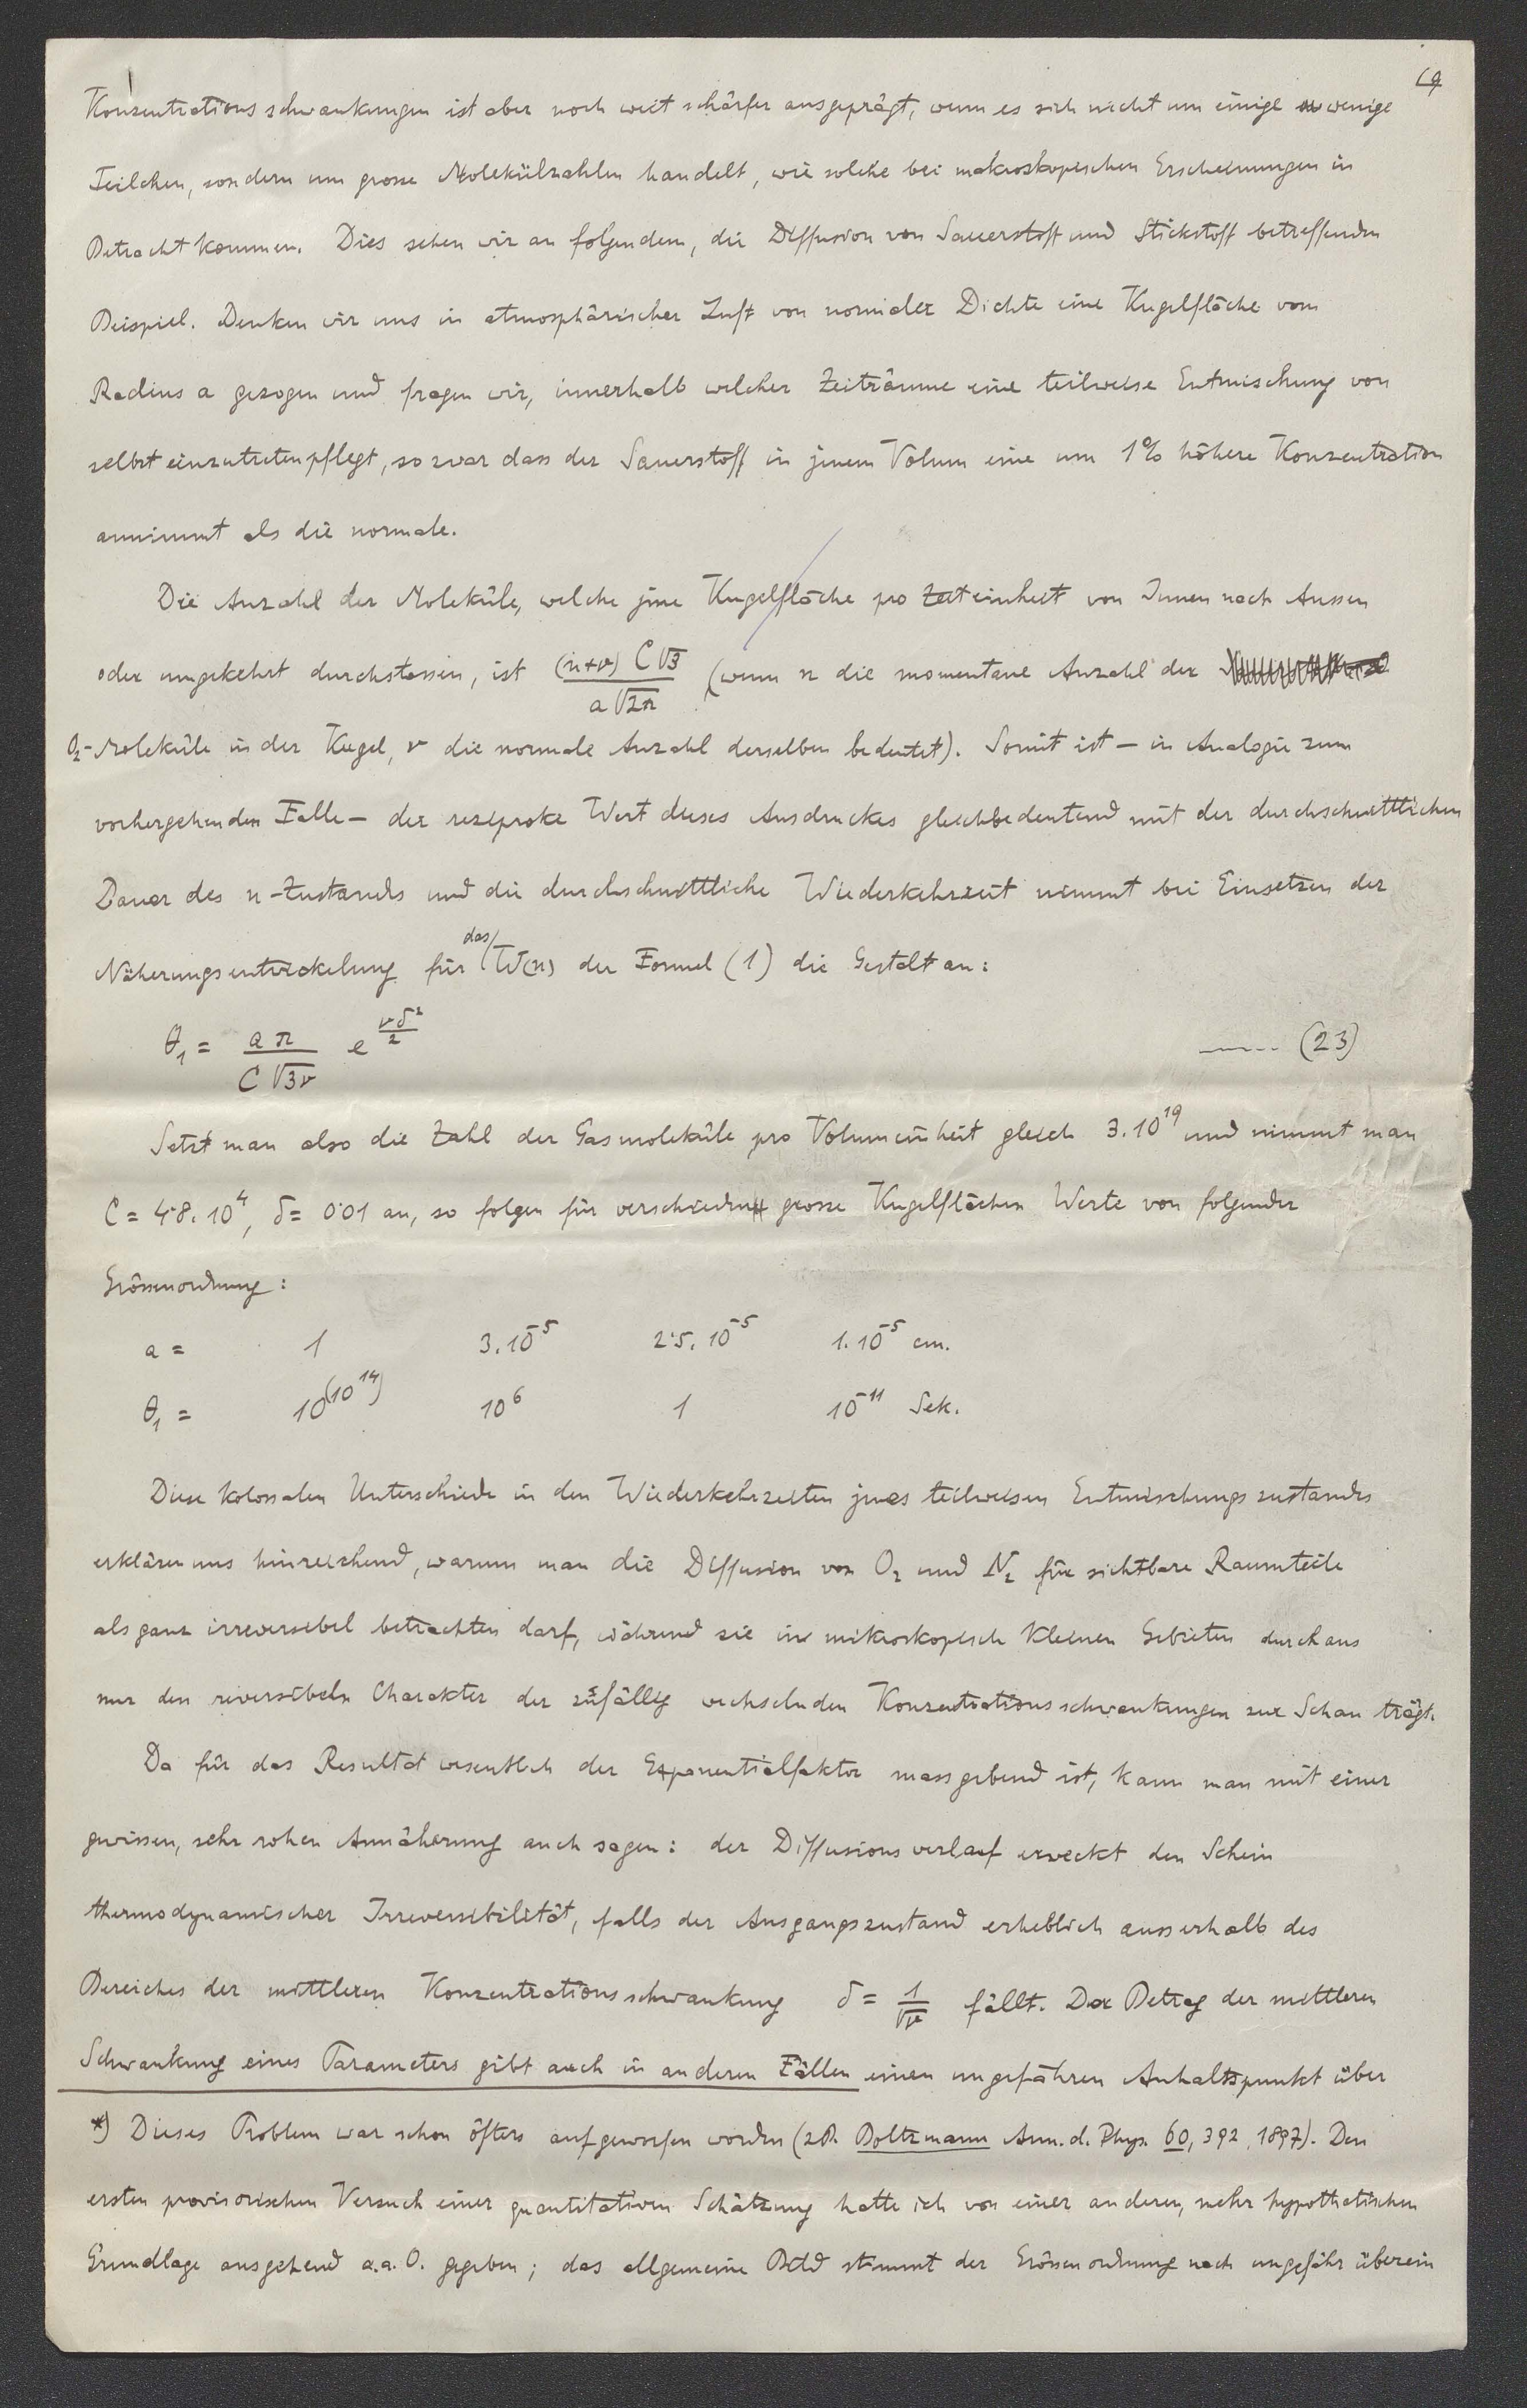 19
Konzentrationsschwankungen ist aber noch weit schärfer ausgeprägt, wenn es sich nicht um einige wenige
Teilchen, sondern um grosse Molekülzahlen handelt, wie solche bei makroskopischen Erscheinungen in
Betracht kommen. Dies sehen wir an folgendem, die Diffusion von Sauerstoff und Stickstoff betreffenden
Beispiel. Denken wir uns in atmosphärischer Luft von normaler Dichte eine Kugelfläche vom
Radius a gezogen und fragen wir, innerhalb welcher Zeiträume eine teilweise Entmischung von
selbst einzutreten pflegt, so zwar dass der Sauerstoff in jenem Volum eine um 1% höhere Konzentration
annimmt als die normale.
Die Anzahl der Moleküle, welche jene Kugelfläche pro Zeiteinheit von Innen nach Aussen
oder umgekehrt durchstossen, ist (n+ν) C√3 / a√2π (wenn n die momentane Anzahl der
O₂-Moleküle in der Kugel, ν die normale Anzahl derselben bedeutet). Somit ist – in Analogie zum
vorhergehenden Falle – der reziproke Wert dieses Ausdruckes gleichbedeutend mit der durchschnittlichen
Dauer des n-Zustands und die durchschnittliche Wiederkehrzeit nimmt bei Einsetzen der
Näherungsentwickelung für das W(n) der Formel (1) die Gestalt an:
θ₁ = aπ / C√3ν e^(νδ²/2) ------ (23)
Setzt man also die Zahl der Gasmoleküle pro Volumeinheit gleich 3.10¹⁹ und nimmt man
C = 4·8.10⁴, δ = 0·01 an, so folgen für verschieden grosse Kugelflächen Werte von folgender
Grössenordnung:
a = 1 3.10⁻⁵ 2·5.10⁻⁵ 1.10⁻⁵ cm.
θ₁ = 10^(10¹⁴) 10⁶ 1 10⁻¹¹ Sek.
Diese kolossalen Unterschiede in den Wiederkehrzeiten jenes teilweisen Entmischungszustands
erklären uns hinreichend, warum man die Diffusion von O₂ und N₂ für sichtbare Raumteile
als ganz irreversibel betrachten darf, während sie in mikroskopisch kleinen Gebieten durchaus
nur den reversibeln Charakter der zufällig wechselnden Konzentrationsschwankungen zur Schau trägt.
Da für das Resultat wesentlich der Exponentialfaktor massgebend ist, kann man mit einer
gewissen, sehr rohen Annäherung auch sagen: der Diffusionsverlauf erweckt den Schein
thermodynamischer Irreversibilität, falls der Ausgangszustand erheblich ausserhalb des
Bereiches der mittleren Konzentrationsschwankung δ = 1/√ν fällt. Der Betrag der mittleren
Schwankung eines Parameters gibt auch in anderen Fällen einen ungefähren Anhaltspunkt über
*) Dieses Problem war schon öfters aufgeworfen worden (z.B. Boltzmann Ann. d. Phys. 60, 392, 1897). Den
ersten provisorischen Versuch einer quantitativen Schätzung hatte ich von einer anderen, mehr hypothetischen
Grundlage ausgehend a.a.O. gegeben; das allgemeine Bild stimmt der Grössenordnung nach ungefähr überein